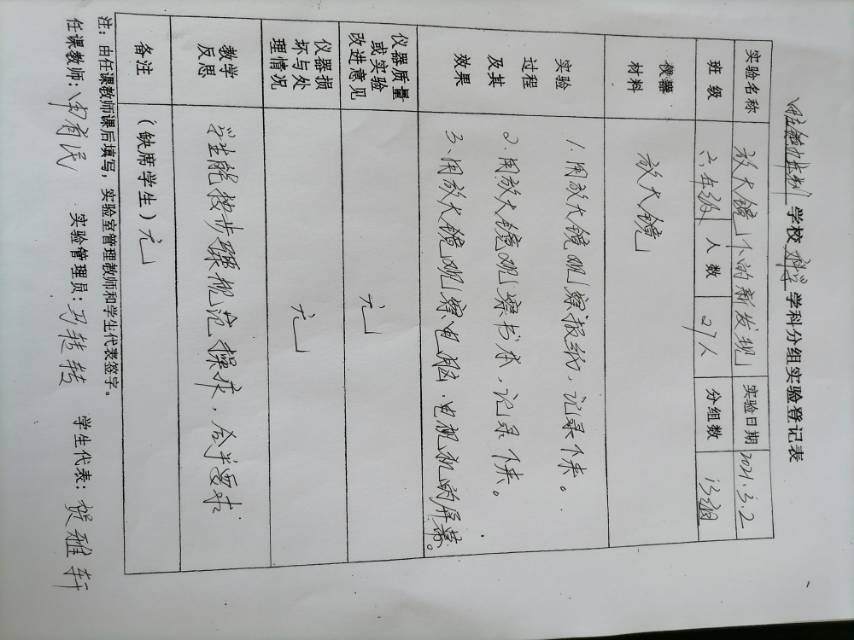 学校 科学 学科分组实验登记表
实验名称 放大镜下的新发现 实验日期 2021.3.2
班级 六年级 人数 27人 分组数 13组
仪器材料 放大镜
实验过程及其效果
1、用放大镜观察报纸,记录下来。
2、用放大镜观察书本,记录下来。
3、用放大镜观察电脑、电视机的屏幕。
仪器质量或实验改进意见 无
仪器损坏与处理情况 无
教学反思 学生能按步骤规范操作,合乎要求
备注 (缺席学生)无
注:由任课教师课后填写,实验室管理教师和学生代表签字。
任课教师: 实验管理员:马转转 学生代表:贺雅轩